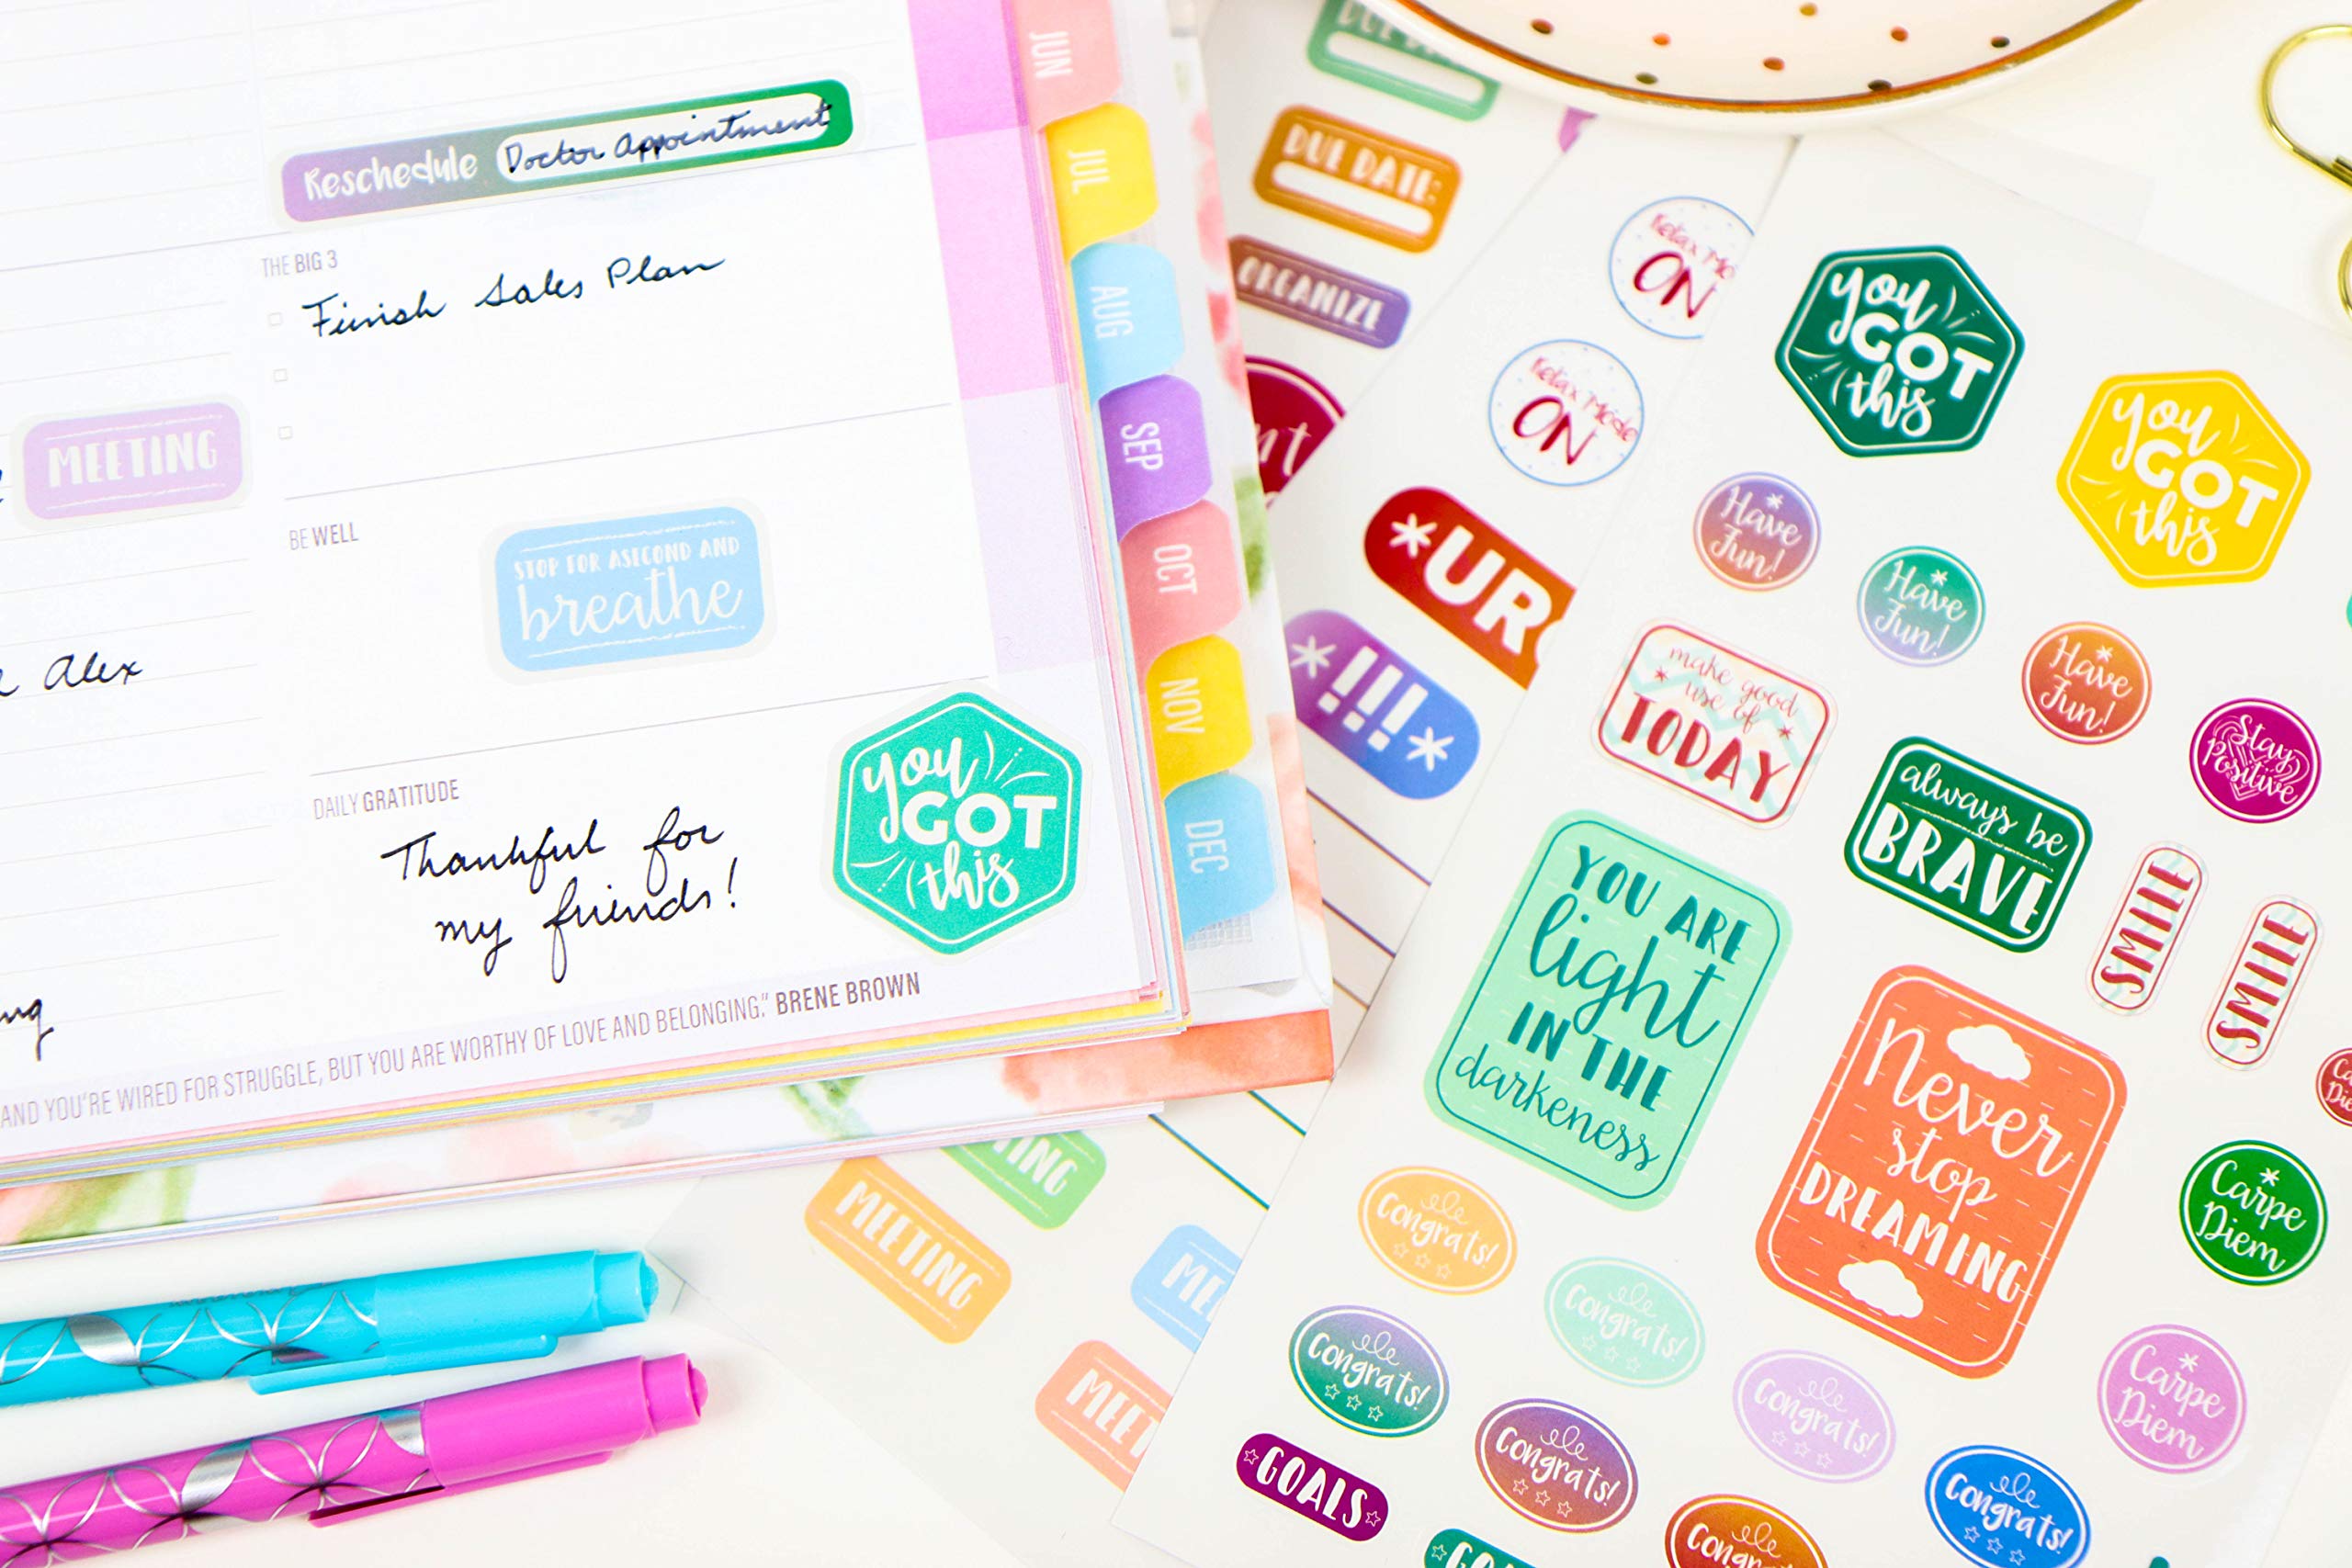 Reschedule Doctor Appointment
THE BIG 3
Finish Sales Plan
MEETING
BE WELL
STOP FOR A SECOND AND
breathe
Alex
DAILY GRATITUDE
Thankful for
my friends!
you
GOT
this
AND YOU'RE WIRED FOR STRUGGLE, BUT YOU ARE WORTHY OF LOVE AND BELONGING." BRENE BROWN
JUN
JUL
AUG
SEP
OCT
NOV
DEC
DUE DATE:
ORGANIZE
Relax Mo
ON
Relax Mode
ON
*UR
*!!!*
MEETING
TING
ME
MEET
you
GOT
this
you
GOT
this
Have
Fun!
Have
Fun!
Have
Fun!
Stay
Positive
make good
use of
TODAY
always be
BRAVE
SMILE
SMILE
YOU ARE
light
IN THE
darkeness
Never
stop
DREAMING
Carpe
Diem
Carpe
Diem
Congrats!
Congrats!
Congrats!
Congrats!
Congrats!
Congrats!
Congrats!
GOALS